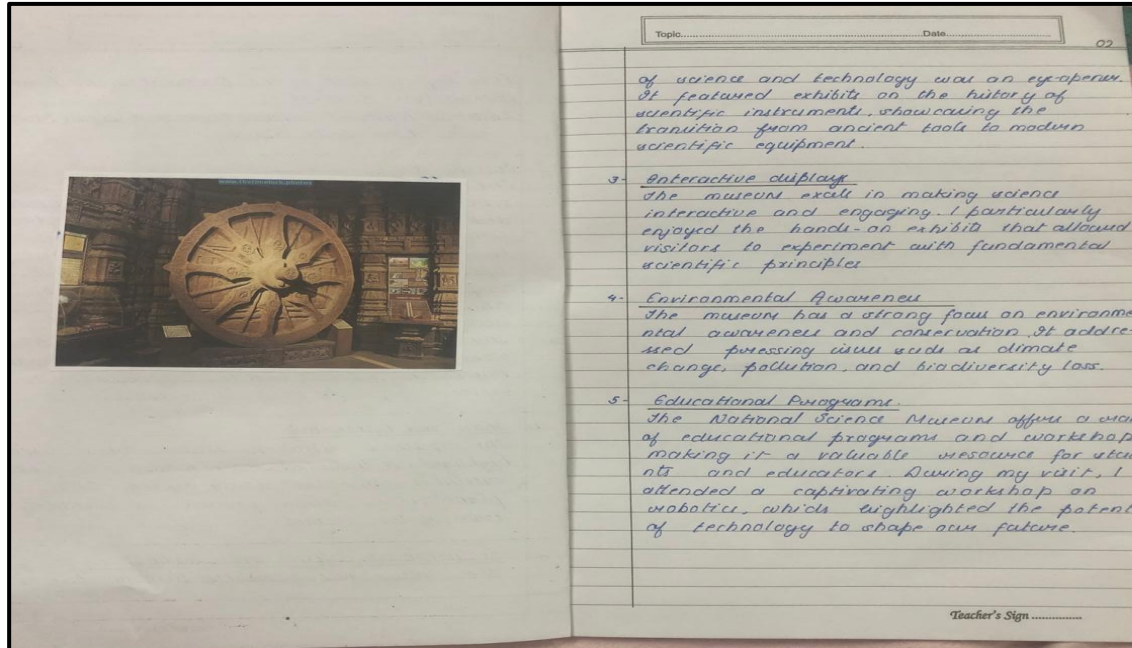 Topic.......................................................................... Date...................................
02
of science and technology was an eye-opener.
It featured exhibits on the history of
scientific instruments, showcasing the
transition from ancient tools to modern
scientific equipment.
3- Interactive displays
The museum excels in making science
interactive and engaging. I particularly
enjoyed the hands-on exhibits that allowed
visitors to experiment with fundamental
scientific principles
4- Environmental Awareness
The museum has a strong focus on environme
ntal awareness and conservation. It addre-
ssed pressing issues such as climate
change, pollution, and biodiversity loss.
5- Educational Programs.
The National Science Museum offers a
of educational programs and workshop
making it a valuable resource for stu
nts and educators. During my visit, I
attended a captivating workshop on
robotics, which highlighted the potent
of technology to shape our future.
Teacher's Sign ...............